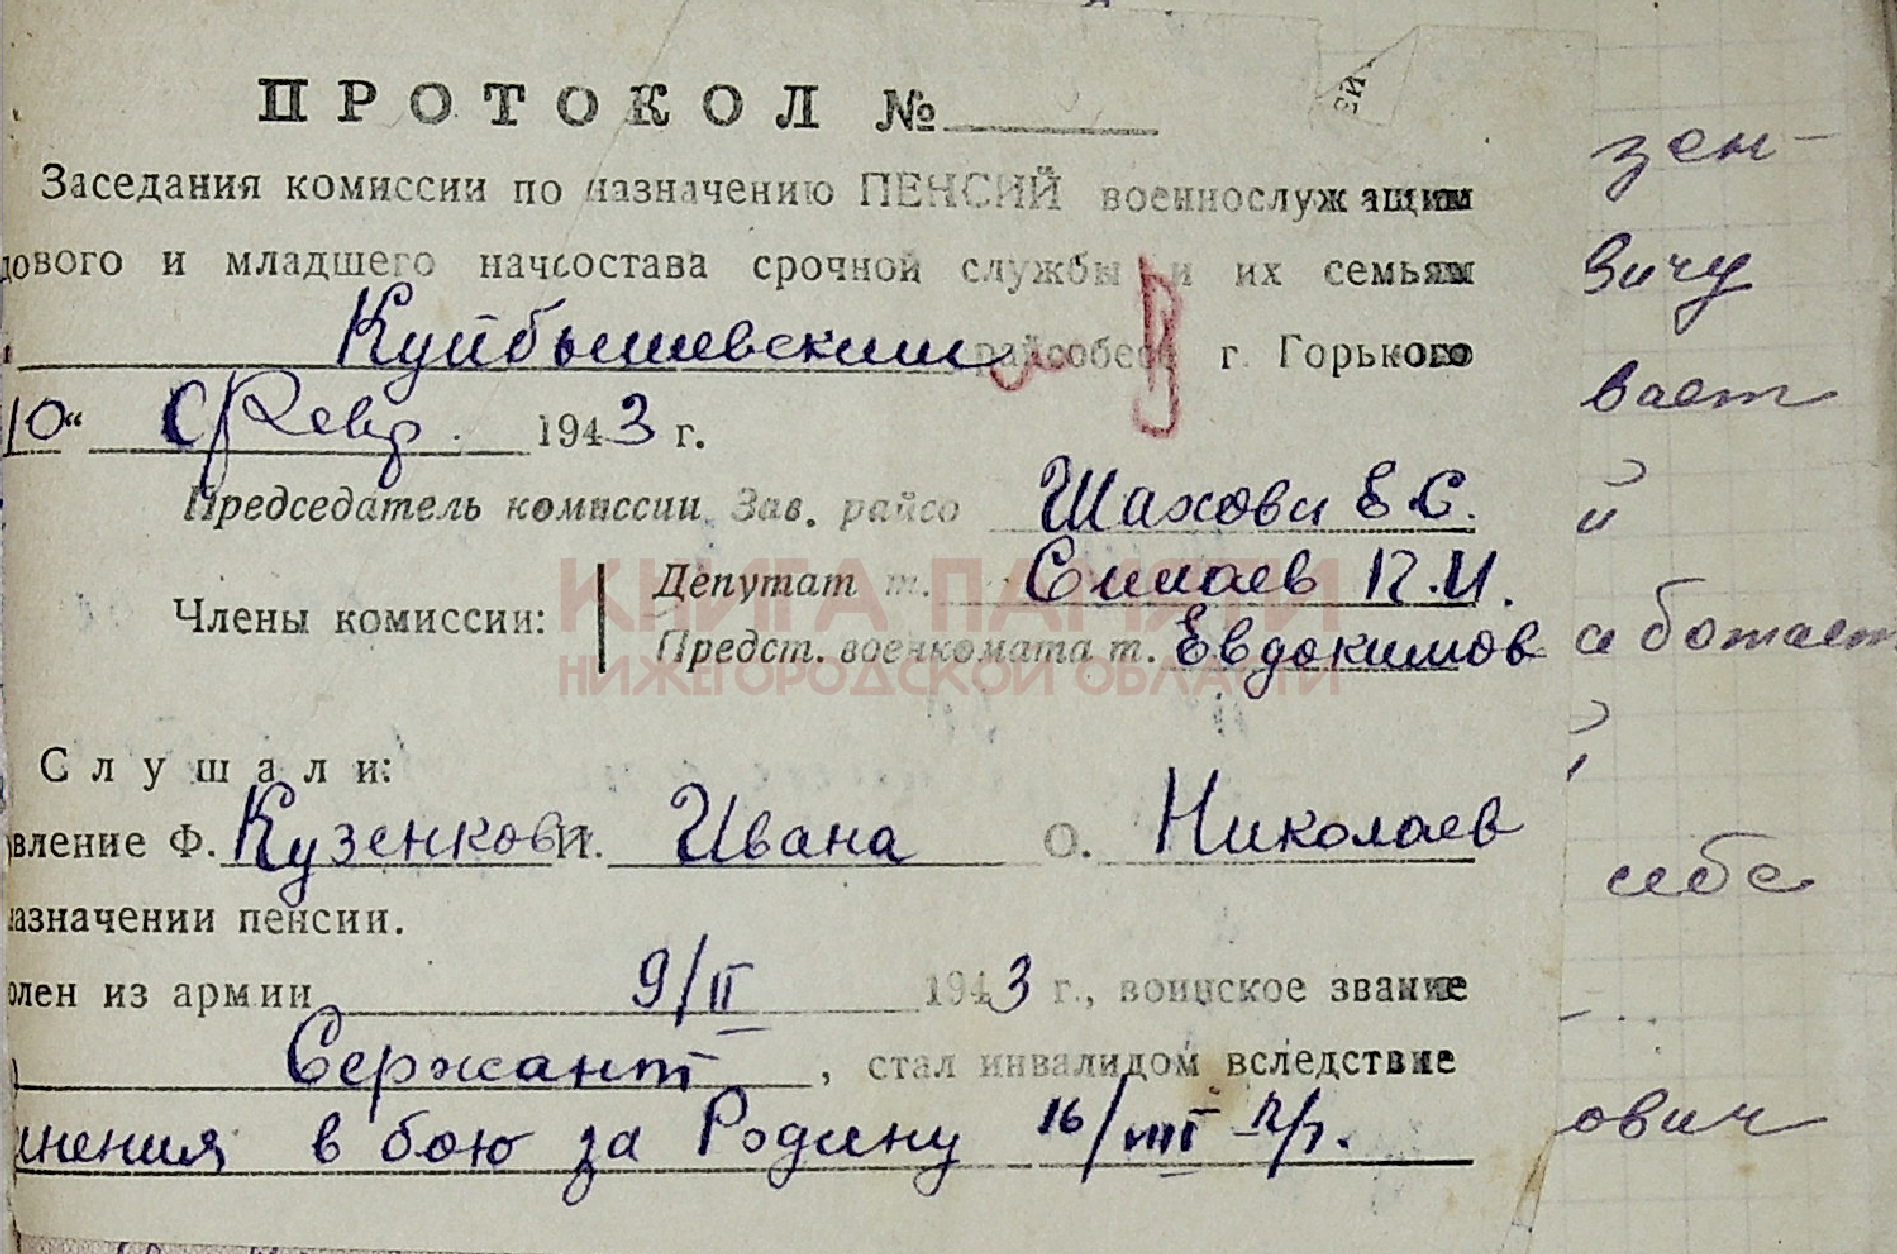 ПРОТОКОЛ №
Заседания комиссии по назначению ПЕНСИЙ военнослужащим
дового и младшего начсостава срочной службы и их семьям
Куйбышевским райсобесе г. Горького
10" Февр. 1943 г.
Председатель комиссии Зав. райсо Шахова Е С.
Члены комиссии: Депутат т. Симаев П.И.
Предст. военкомата т. Евдокимов
КНИГА ПАМЯТИ
НИЖЕГОРОДСКОЙ ОБЛАСТИ
Слушали:
вление Ф. Кузенков И. Ивана О. Николаев
назначении пенсии.
олен из армии 9/II 1943 г., воинское звание
Сержант, стал инвалидом вследствие
нения в бою за Родину 16/VIII
ей
зен-
вичу
вает
й
аботает
себе
ович